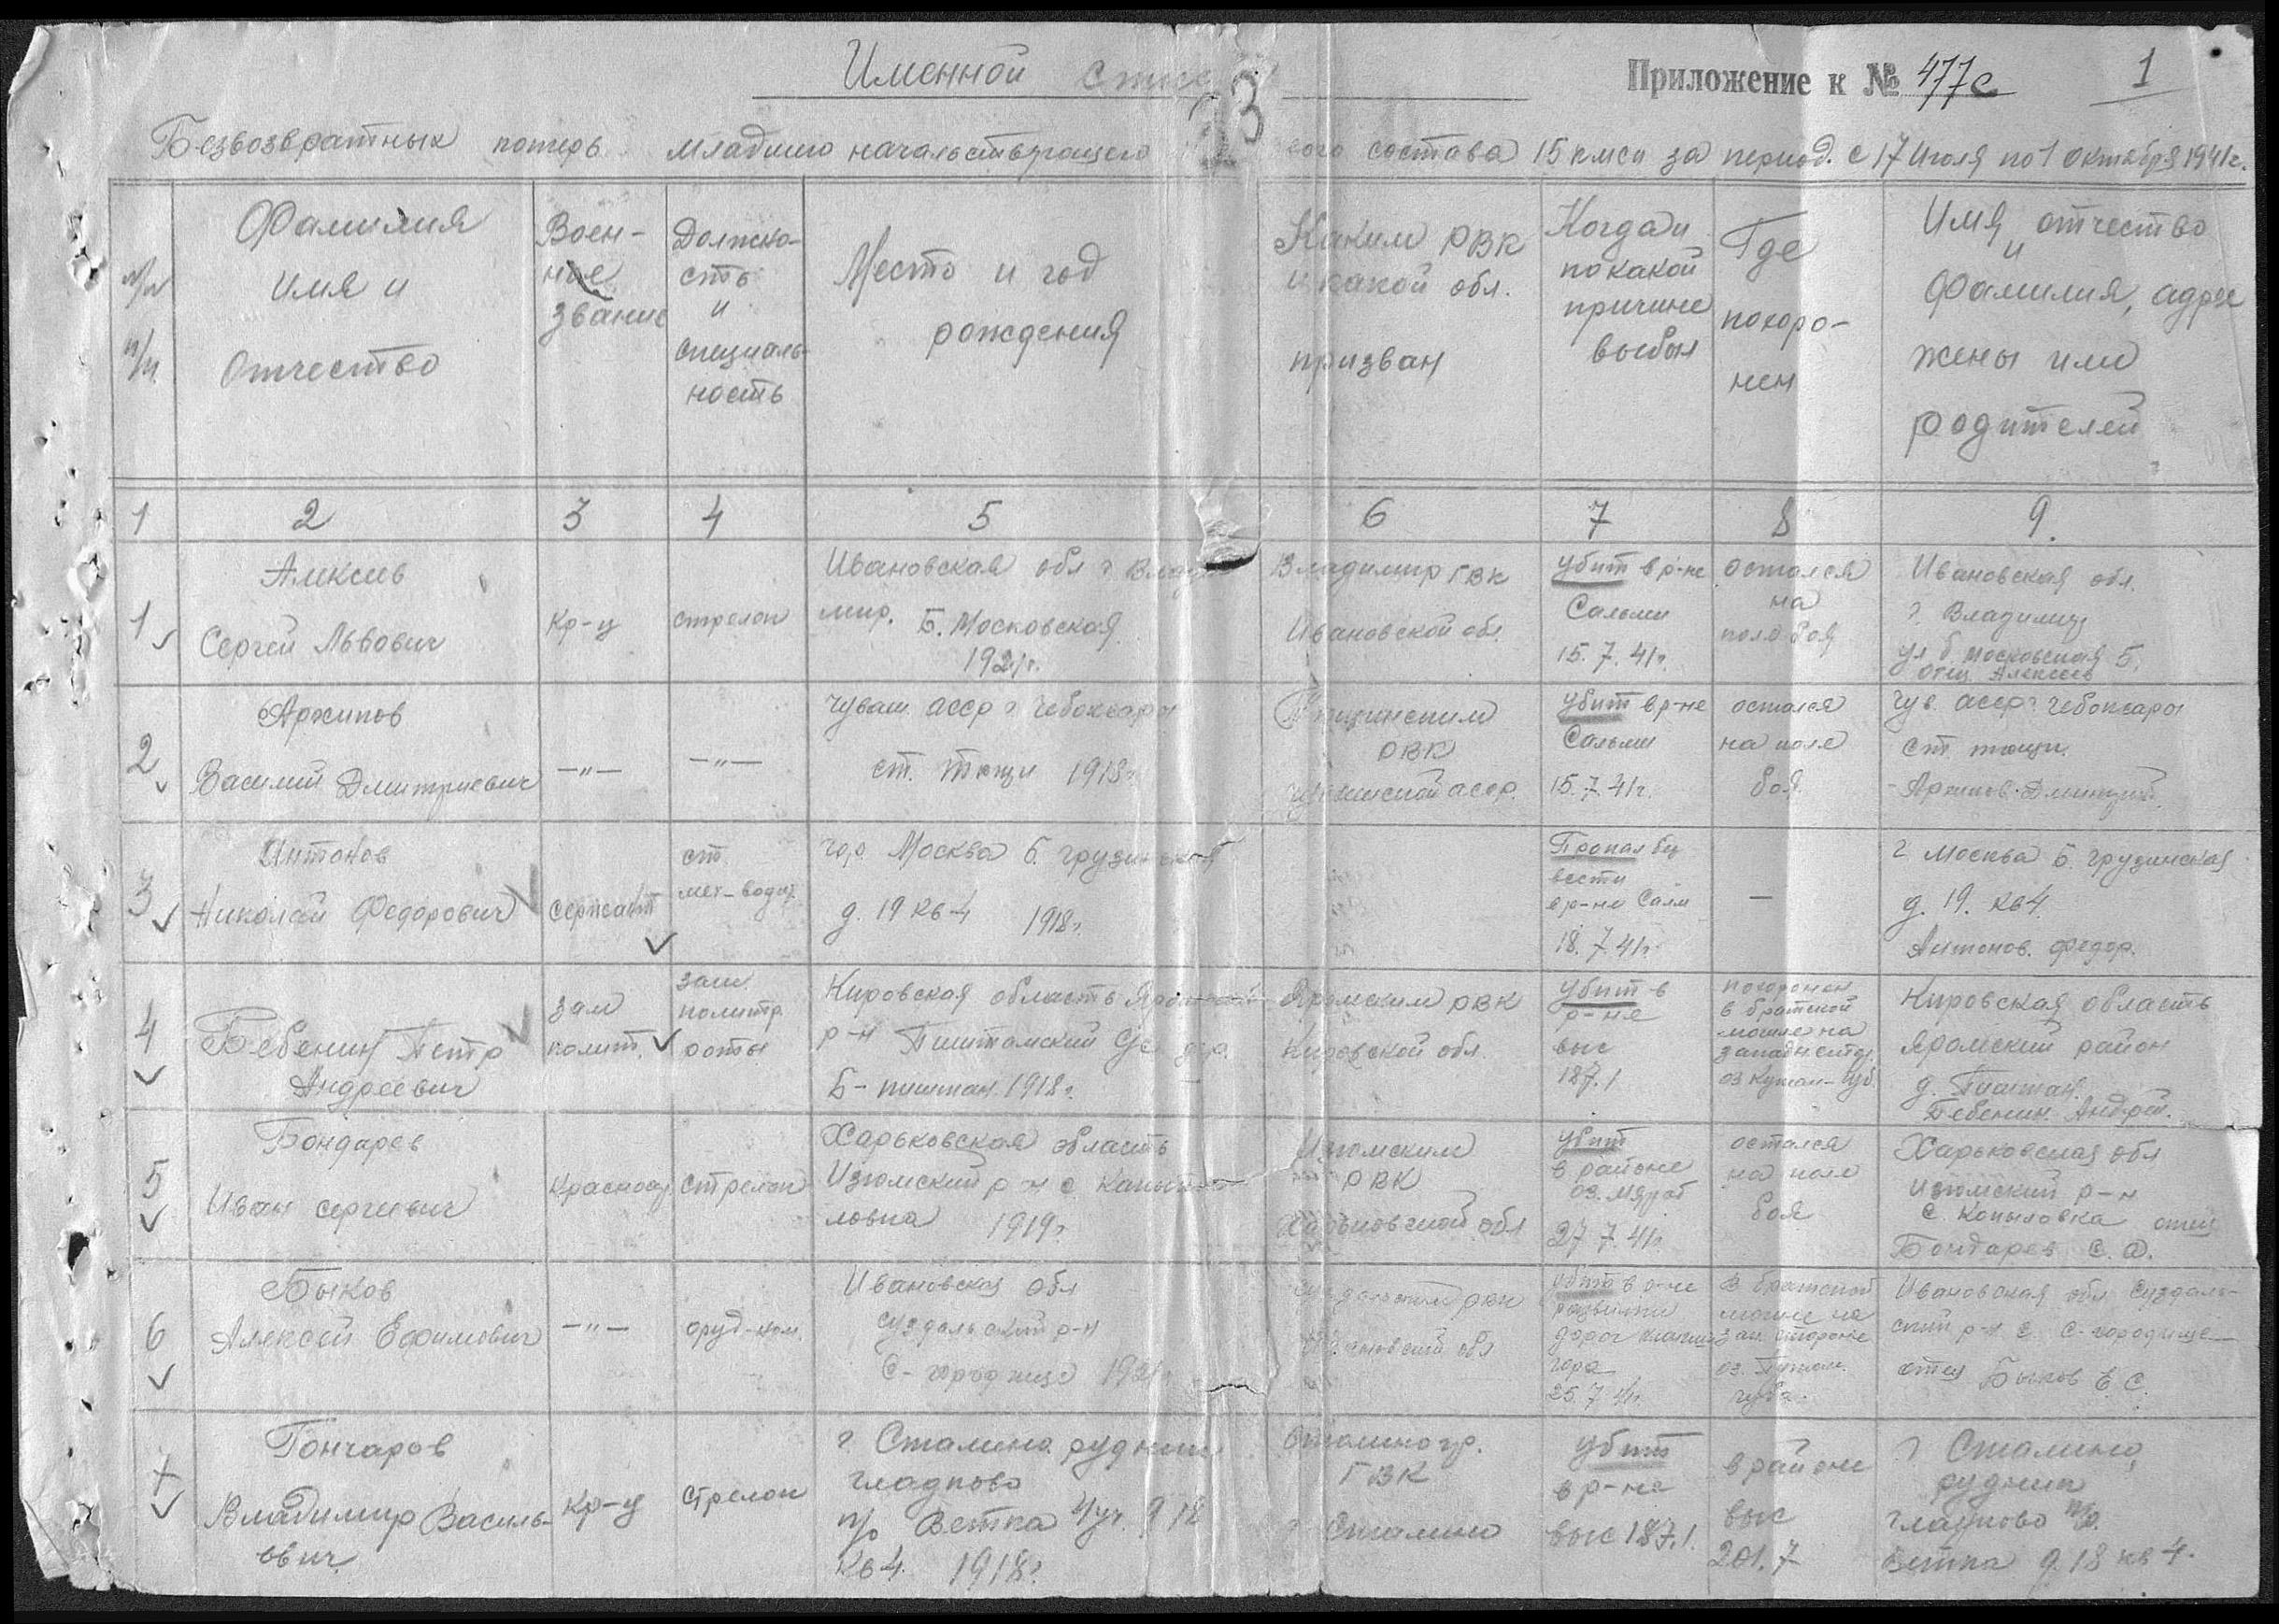 Именной спис
Приложение к № 477с
1
3
Безвозвратных потерь младшего начальствующего
ого состава 15 кмсп за период с 17 июля по 1 октября 1941г.
п/п
Фамилия
имя и
отчество
Воен-
ное
звание
Должно-
сть
и
специаль-
ность
Место и год
рождения
Каким РВК
и какой обл.
призван
Когда и
по какой
причине
выбыл
Где
похоро-
нен
Имя, отчество
и
фамилия, адрес
жены или
родителей
1 2 3 4 5 6 7 8 9.
1
Алексеев
Сергей Львович
Кр-ц
стрелок
Ивановская обл г Влади
мир. Б. Московская
1921г.
Владимир ГВК
Ивановской обл.
убит в р-не
Сальми
15. 7. 41г.
остался
на
поле боя
Ивановская обл.
г. Владимир
ул Б Московская 5.
отец Алексеев
2
Архипов
Василий Дмитриевич
—"—
—"—
Чуваш АССР г Чебоксары
ст. 1918г
РВК
АССР.
убит в р-не
Сальми
15. 7. 41г.
остался
на поле
боя.
Чув. АССР г Чебоксары
ст.
Архипов Дмитрий
3
Антонов
Николай Федорович
сержант
ст.
мех-водит.
гор. Москва Б. Грузинская
д. 19 кв 4 1918г.
Пропал без
вести
в р-не Салм
18. 7. 41г.
—
г Москва Б. Грузинская
д. 19. кв 4.
Антонов. Федор.
4
Бебенин Петр
Андреевич
зам
полит.
зам.
политр.
роты
Кировская область
р-н Пиштанский
Б-пиштан. 1918г.
Яранским РВК
Кировской обл.
убит в
р-не
выс
187.1
похоронен
в братской
могиле на
оз
Кировская область
Яранский район
д. Пиштан.
Бебенин Андрей.
5
Бондарев
Иван Сергеевич
Красноар
стрелок
Харьковская область
Изюмский р-н с
ловка 1919г.
Изюмским
РВК
Харьковской обл
убит
в районе
оз.
27. 7. 41г.
остался
на поле
боя
Харьковская обл
Изюмский р-н
с. Копыловка отец
Бондарев С. Ф.
6
Быков
Алексей Ефимович
—"—
оруд-ном.
Ивановская обл
Суздальский р-н
С-городище 1921г
Суздальским РВК
Ивановской обл
убит в р-не
развилки
дорог
гора
25. 7. 41г.
В братской
могиле на
зап. стороне
оз.
губа.
Ивановская обл. Суздаль-
ский р-н с. С-городище
отец Быков Е. С.
7
Гончаров
Владимир Василь-
евич
Кр-ц
стрелок
г Сталино рудник
гладково
п/о Ветка 18
кв 4. 1918г.
Сталиногр.
ГВК
г Сталино
убит
в р-не
выс 187.1.
в районе
выс
201.7
г Сталино,
рудник
гладково п/о
Ветка д. 18 кв 4.